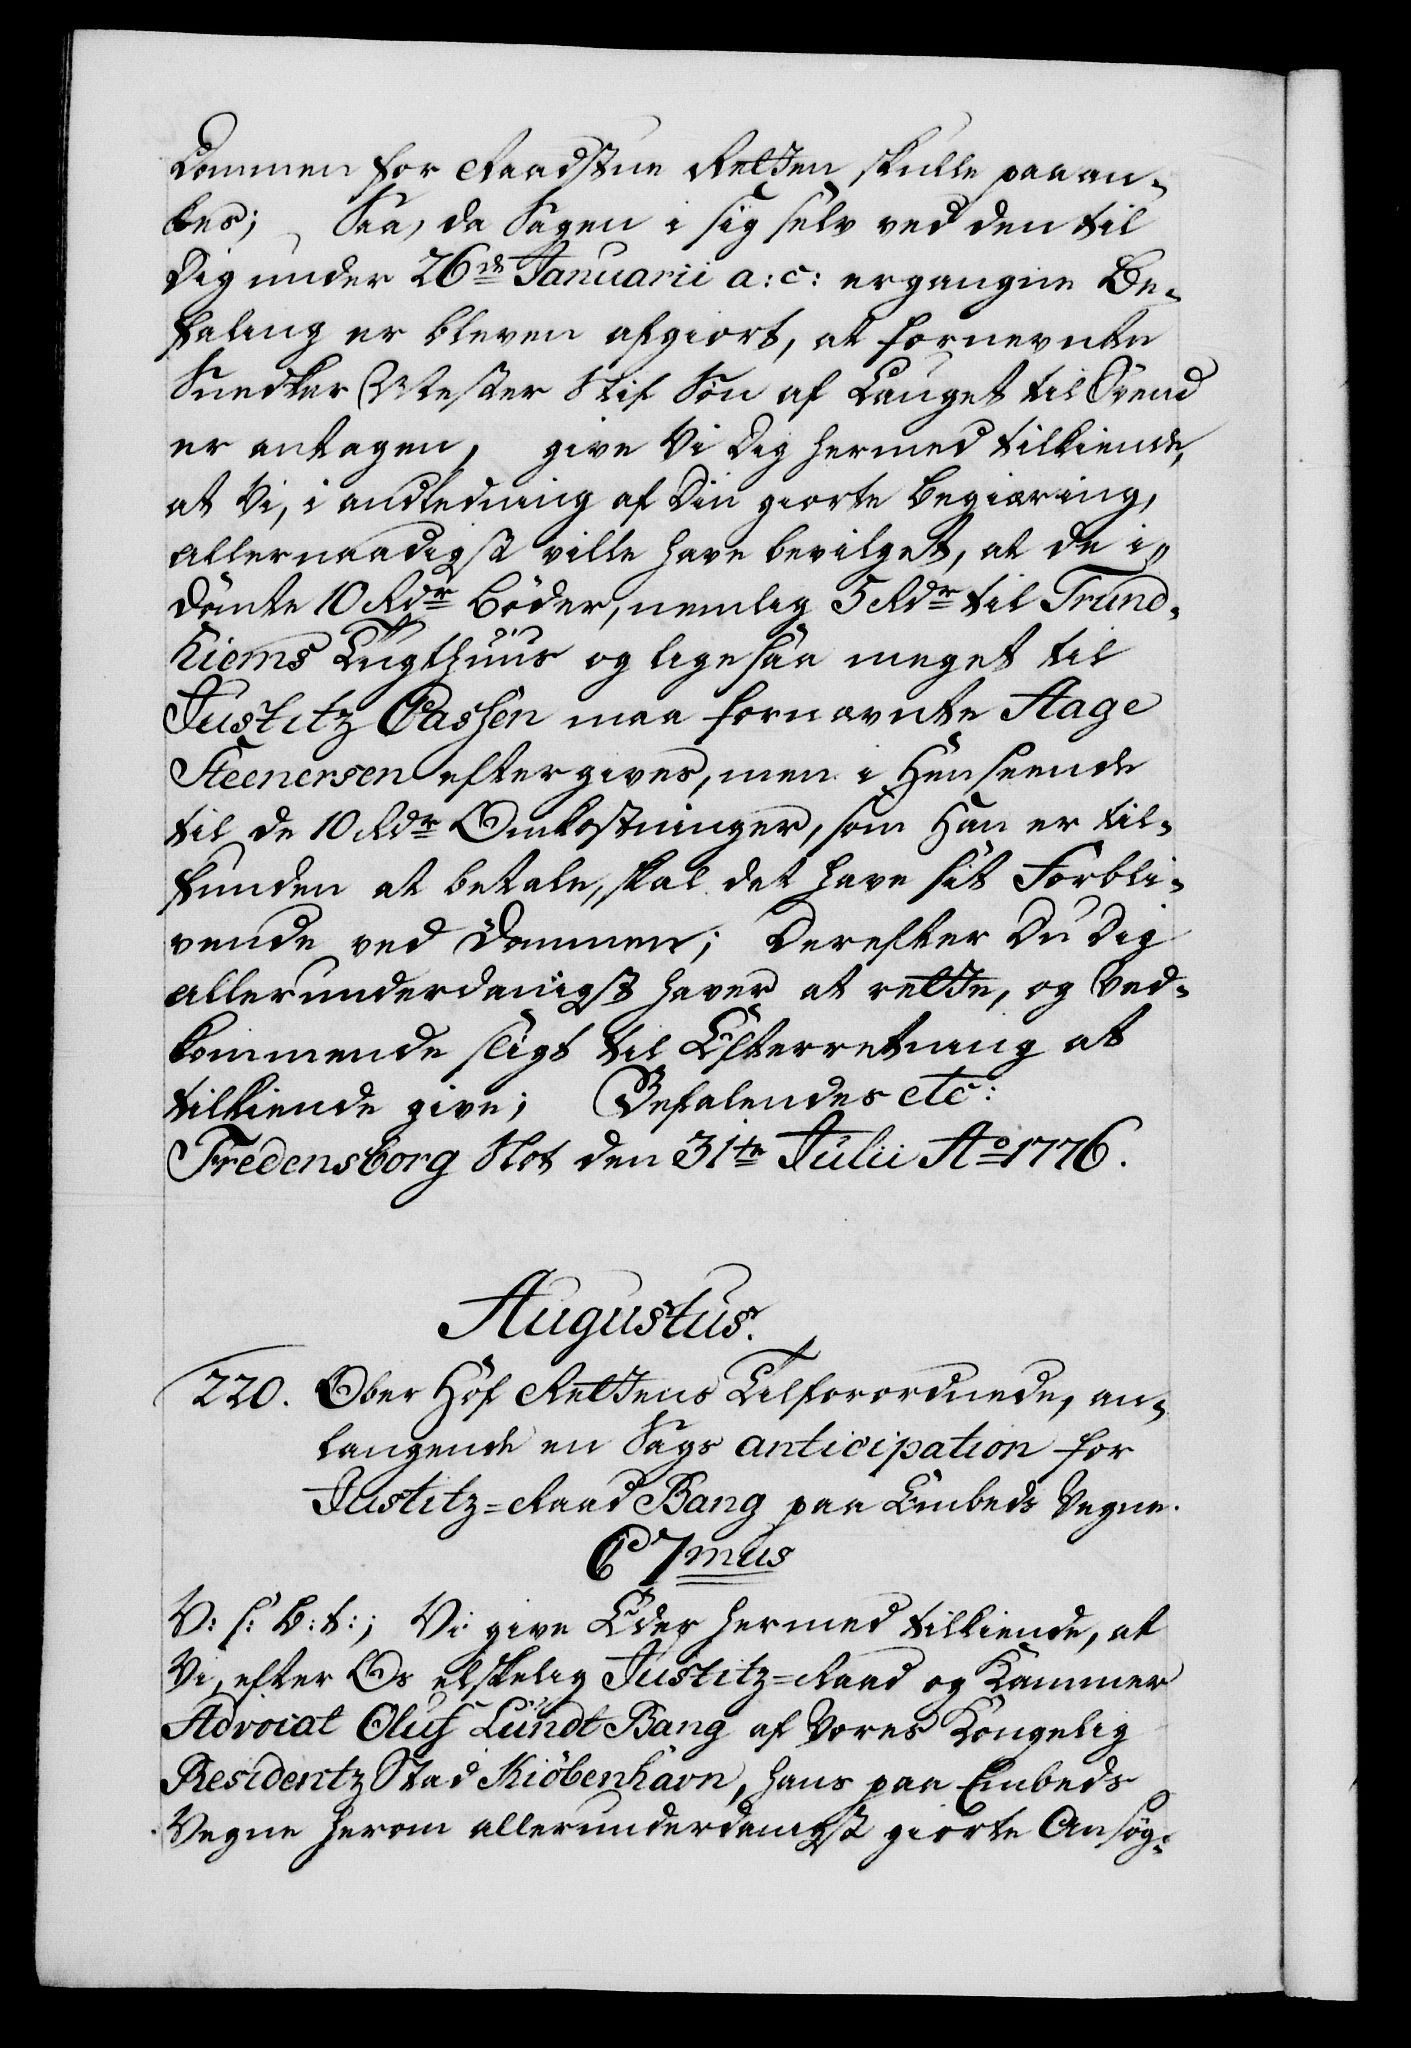 Dommen for Raadstue Retten skulle paaan-
kes; Saa, da Sagen i sig selv ved den til
Dig under 26de Januarii a: c: ergangne Be-
faling er bleven afgiort, at fornevnte
Snedker Mester Stif Søn af Lauget til Svend
er antagen, give Vi Dig hermed tilkiende,
at Vi, i andledning af Din giorte Begiæring,
allernaadigst ville have bevilget, at de i-
dömte 10 Rdr Böder, nemlig 5 Rdr til Trund-
hiems Tugthuus og ligesaa meget til
Justitz Cassen maa fornævnte Aage
Steenersen eftergives, men i Henseende
til de 10 Rdr Omkostninger, som Han er til-
funden at betale, skal det have sit Forbli-
vende ved Dommen; Derefter Du Dig
allerunderdanigst haver at rette, og Ved-
kommende sligt til Efterretning at
tilkiende give; Befalendes etc:
Fredensborg Slot den 31te Julii Ao 1776.
Augustus.
220. Ober Hof Rettens Tilforordnede, an-
langende en Sags anticipation for
Justitz-Raad Bang paa Embeds Vegne.
C 7mus
V: s: B: t:; Vi give Eder hermed tilkiende, at
Vi, efter Os elskelig Justitz-Raad og Kammer
Advocat Oluf Lundt Bang af Vores Kongelig
Residentz Stad Kiöbenhavn, hans paa Embeds
Vegne herom allerunderdanigst giorte Ansög-